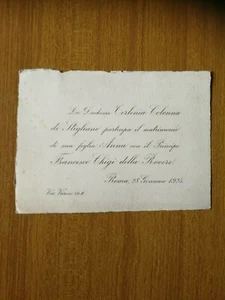 La Duchessa Carlotta Colonna
di Stigliano partecipa il matrimonio
di sua figlia Anna con il Principe
Francesco Chigi della Rovere.
Roma, 28 Gennaio 1924.
Via